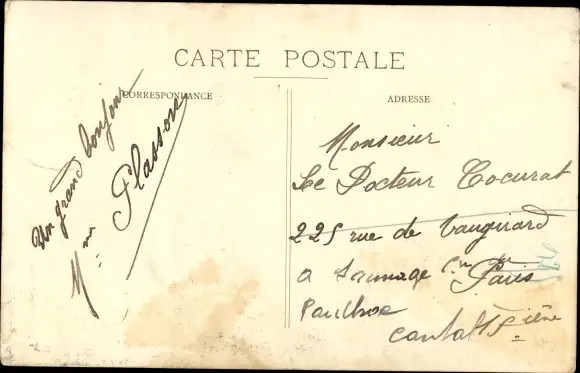 CARTE POSTALE
CORRESPONDANCE
Un grand bonjour
Mme Plasson
ADRESSE
Monsieur
Le Docteur Cocurat
225 rue de Vaugirard
a Sauvage Cne de Paris
Paulhac
Cantal